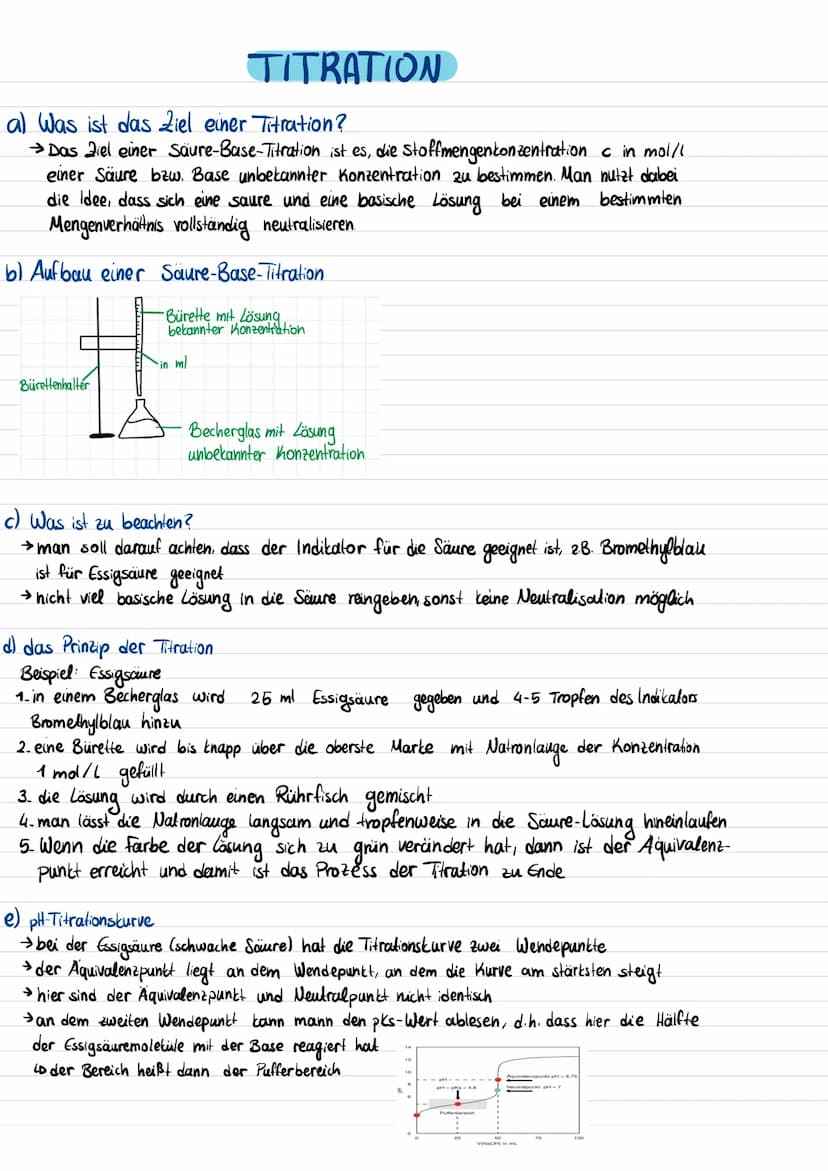 TITRATION
a) Was ist das Ziel einer Titration?
→ Das Ziel einer Säure-Base-Titration ist es, die Stoffmengenkonzentration c in mol/l
einer Säure bzw. Base unbekannter Konzentration zu bestimmen. Man nutzt dabei
die Idee, dass sich eine saure und eine basische Lösung bei einem bestimmten
Mengenverhältnis vollständig neutralisieren.
b) Aufbau einer Säure-Base-Titration
Bürette mit Lösung
bekannter Konzentration
in ml
Bürettenhalter
Becherglas mit Lösung
unbekannter Konzentration
c) Was ist zu beachten?
→ man soll darauf achten, dass der Indikator für die Säure geeignet ist, z.B. Bromethylblau
ist für Essigsäure geeignet
→ nicht viel basische Lösung in die Säure reingeben, sonst keine Neutralisation möglich
d) das Prinzip der Titration
Beispiel: Essigsäure
1. in einem Becherglas wird 25 ml Essigsäure gegeben und 4-5 Tropfen des Indikators
Bromethylblau hinzu
2. eine Bürette wird bis knapp über die oberste Marke mit Natronlauge der Konzentration
1 mol/L gefüllt
3. die Lösung wird durch einen Rührfisch gemischt
4. man lässt die Natronlauge langsam und tropfenweise in die Säure-Lösung hineinlaufen
5. Wenn die Farbe der Lösung sich zu grün verändert hat, dann ist der Äquivalenz-
punkt erreicht und damit ist das Prozess der Titration zu Ende
e) pH-Titrationskurve
→ bei der Essigsäure (schwache Säure) hat die Titrationskurve zwei Wendepunkte
→ der Äquivalenzpunkt liegt an dem Wendepunkt, an dem die Kurve am stärksten steigt
→ hier sind der Äquivalenzpunkt und Neutralpunkt nicht identisch
→ an dem zweiten Wendepunkt kann mann den pks-Wert ablesen, d.h. dass hier die Hälfte
der Essigsäuremoleküle mit der Base reagiert hat
↳ der Bereich heißt dann der Pufferbereich
14
12
10
8
6
0
pH
pH = pKs = 4,8
Pufferbereich
Äquivalenzpunkt pH = 8,75
Neutralpunkt pH = 7
0 25 50 75 100
V(NaOH) in mL